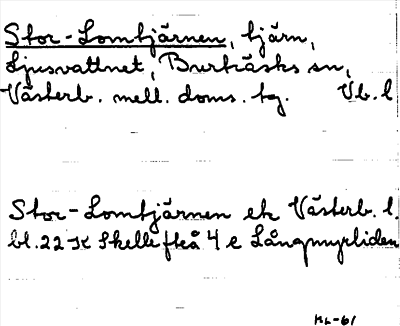 Stor-Lomtjärnen, tjärn,
Ljusvattnet, Burträsks sn,
Västerb. mell. doms. tg. Vb. l
Stor-Lomtjärnen ek Västerb. l.
bl. 22 JK Skellefteå 4 e Långmyrliden
KL-61